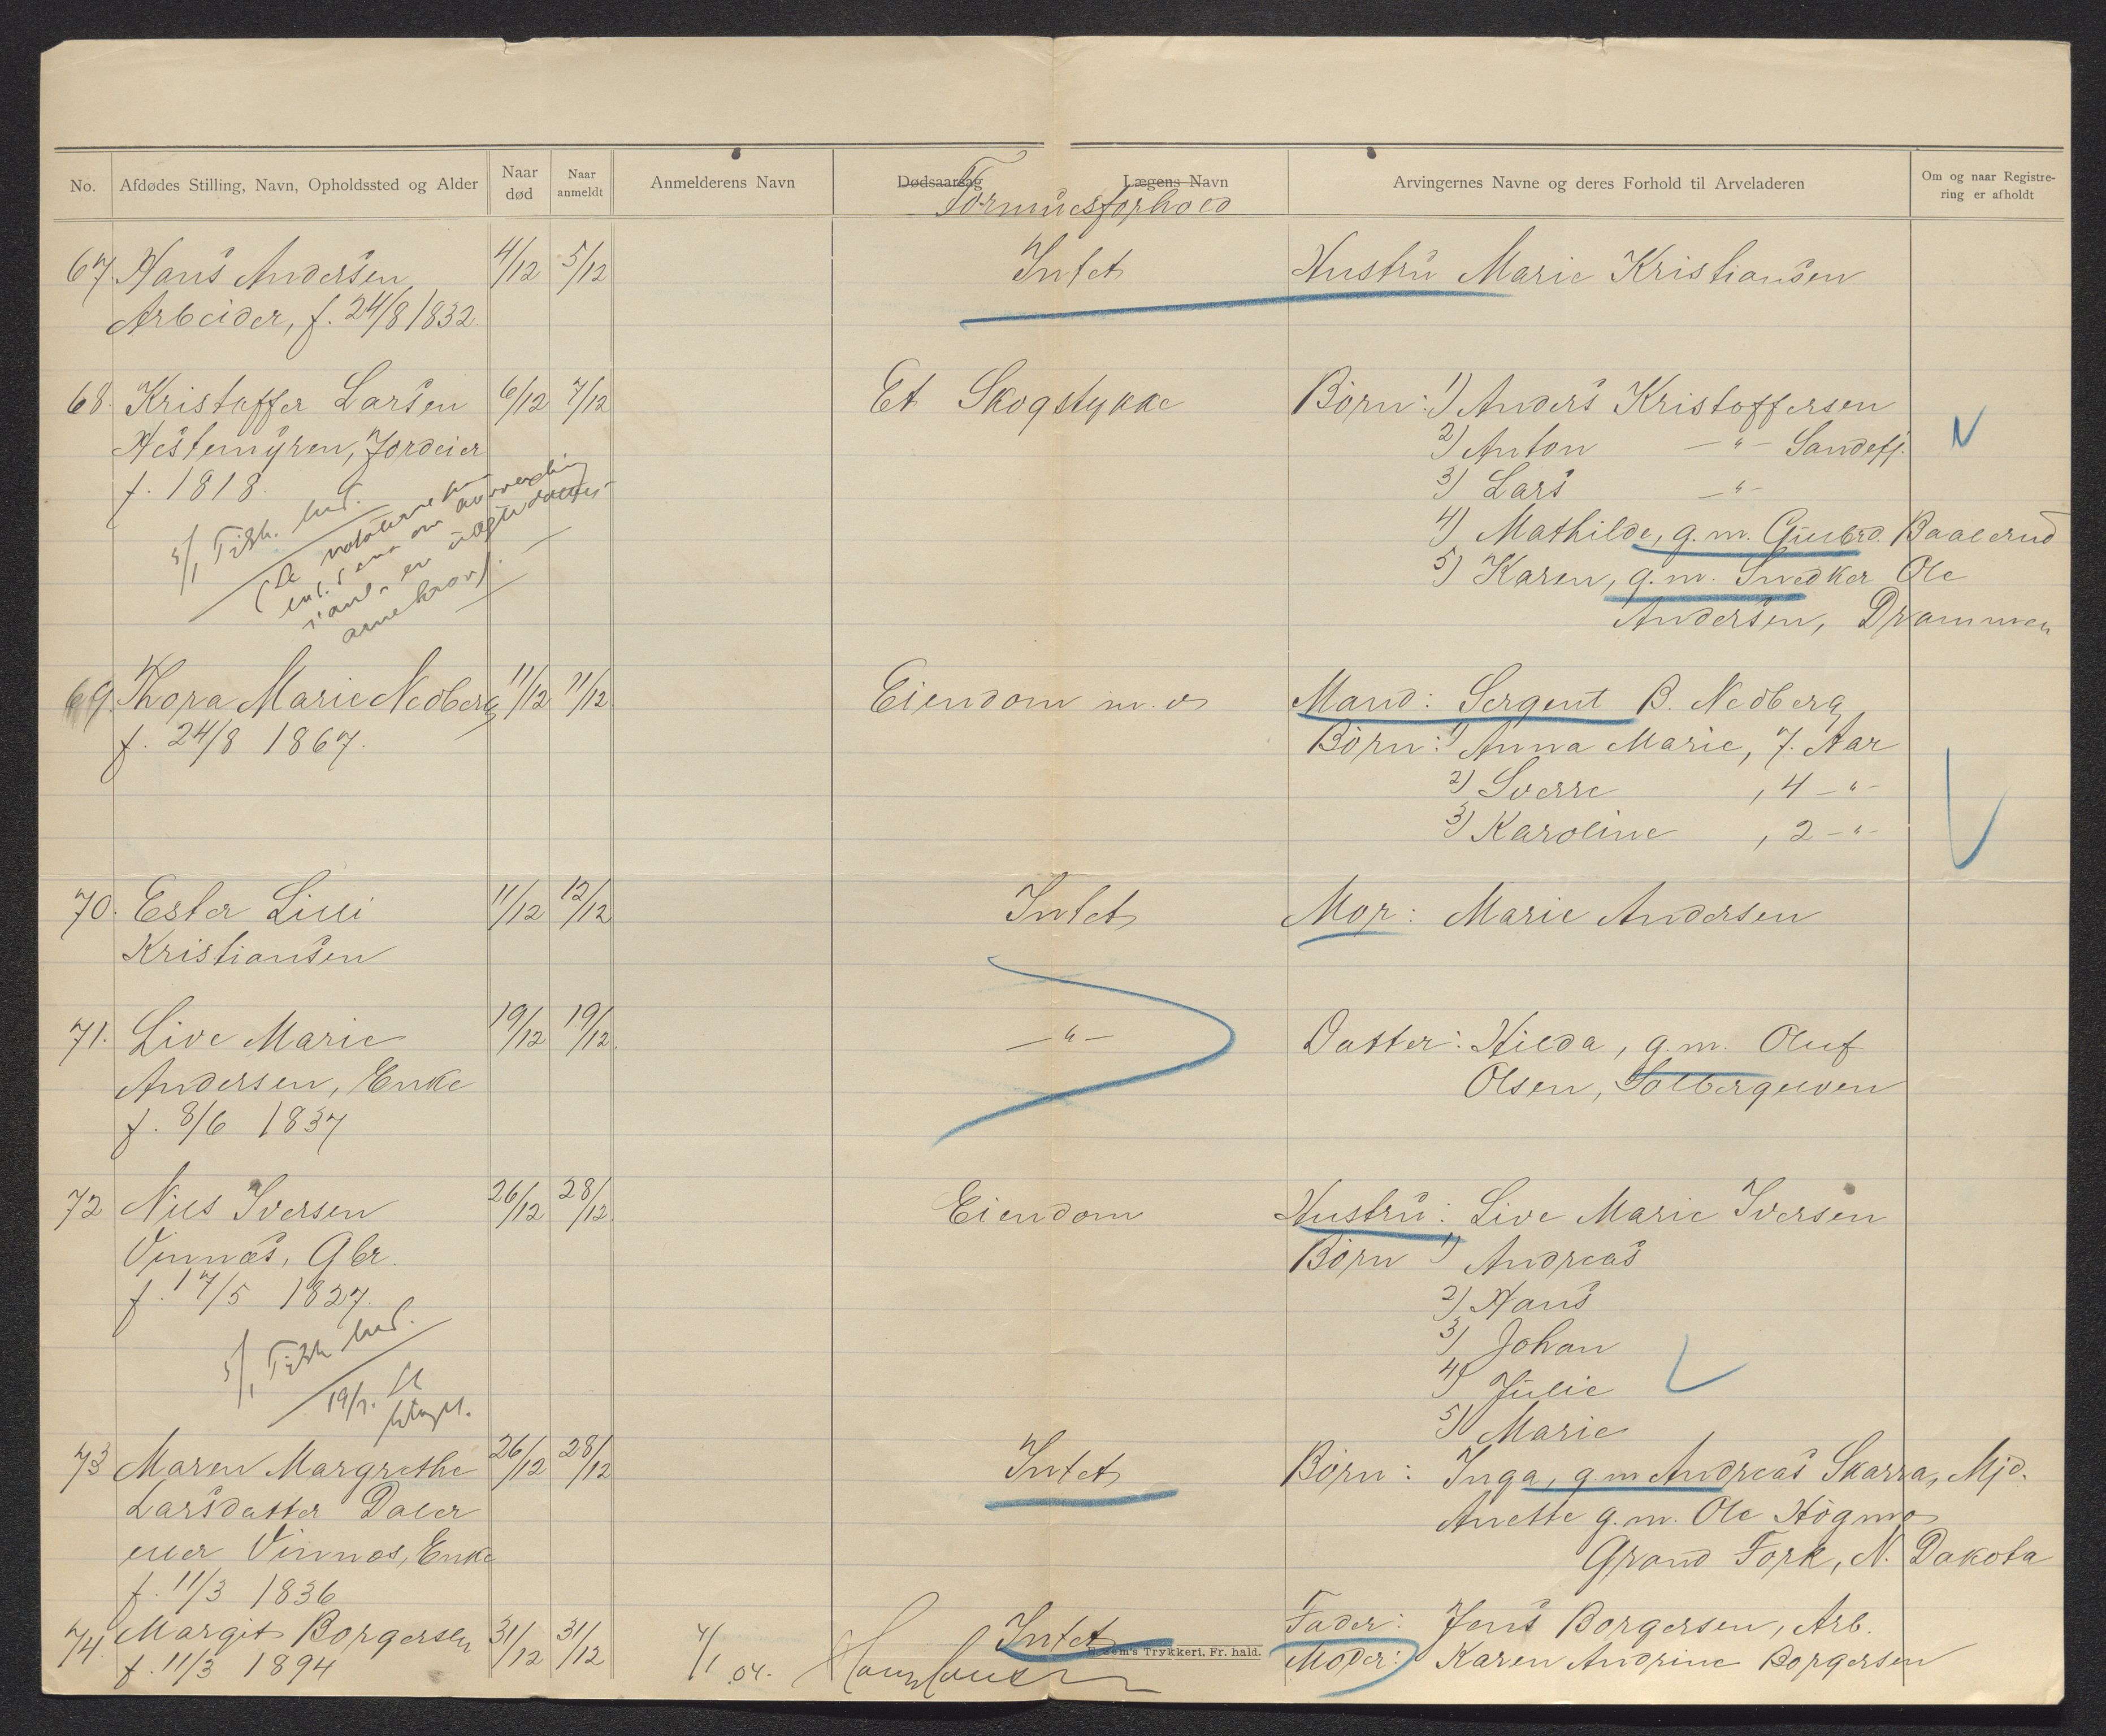 No.
Afdødes Stilling, Navn, Opholdssted og Alder
Naar død
Naar anmeldt
Anmelderens Navn
Dødsaarsag
Lægens Navn
Formuesforhold
Arvingernes Navne og deres Forhold til Arveladeren
Om og naar Registre-
ring er afholdt
67. Hans Andersen 4/12 5/12 Intet Hustru Marie Kristiansen
Arbeider, f. 24/8 1832.
68. Kristoffer Larsen 6/12 7/12 Et Skogstykke Børn: 1) Anders Kristoffersen
Hestemyren, Jordeier 2) Anton —"— Sandefj.
f. 1818. 3) Lars —"—
4) Mathilde, g.m. Gulbrd. Baalerud
5) Karen, g.m. Snedker Ole
Andersen, Drammen
5/1 Tilsk. hid.
69. Thora Marie Nedberg 11/12 11/12. Eiendom m.v. Mand: Sergent B. Nedberg
f. 24/8 1867. Børn: 1) Anna Marie, 7. Aar
2) Sverre , 4 —"—
3) Karoline , 2 —"—
70. Ester Lilli 11/12 12/12 Intet Mor: Marie Andersen
Kristiansen
71. Live Marie 19/12 19/12. —"— Datter: Hilda, g.m. Oluf
Andersen, Enke Olsen, Solbergelven
f. 8/6 1837
72 Nils Iversen 26/12 28/12. Eiendom Hustru: Live Marie Iversen
Vinnæs, Gbr. Børn 1) Andreas
f. 17/5 1827. 2) Hans
3) Johan
4) Julie
5) Marie
5/1 Tilsk hid.
19/1.
73 Maren Margrethe 26/12 28/12 Intet Børn: Inga, g.m Andreas Skarra, Mjd.
Larsdatter Daler Anette g.m. Ole Høgmo
eller Vinnæs, Enke Grand Fork, N. Dakota
f. 11/3 1836
74. Margit Borgersen 31/12 31/12 Intet Fader: Jens Borgersen, Arb.
f. 11/3 1894 4/1 04. Moder: Karen Andrine Borgersen
Trykkeri, Fr. hald.